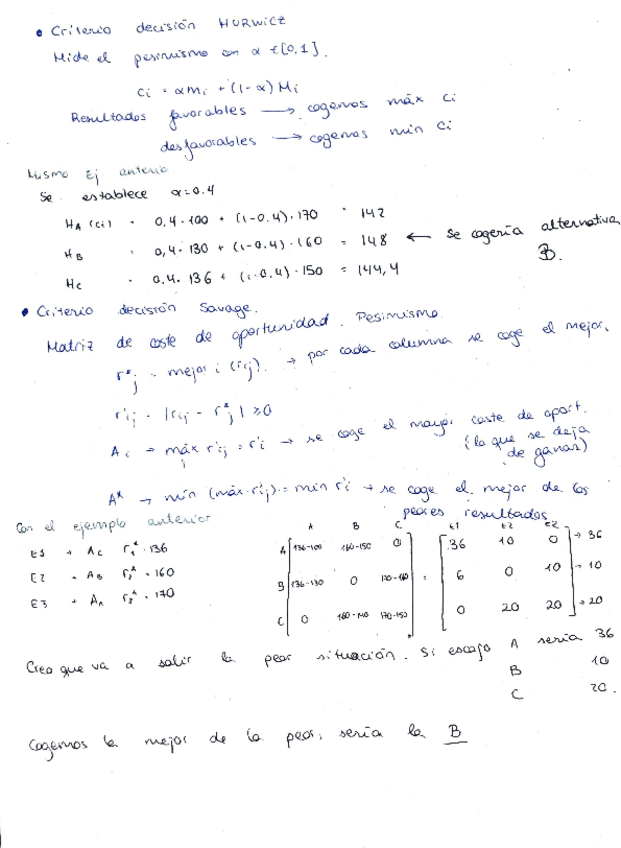 • Criterio decisión HURWICZ
Mide el pesimismo con α ∈ [0,1].
Ci = αmi + (1-α) Mi
Resultados favorables → cogemos máx Ci
desfavorables → cogemos min Ci
Mismo Ej anterior
Se establece α=0.4
HA (Ci) = 0,4·100 + (1-0.4)·170 = 142
HB = 0,4·130 + (1-0.4)·160 = 148 ← Se cogería alternativa B.
HC = 0.4·136 + (1-0.4)·150 = 144,4
• Criterio decisión Savage.
Matriz de coste de oportunidad. Pesimismo
r*j = mejor i (rij). → por cada columna se coge el mejor.
r'ij = |rij - r*j| ≥0
Ai → máx r'ij = r'i → se coge el mayor coste de oport.
j
(lo que se deja de ganar)
A* → min (máx r'ij) = min r'i → se coge el mejor de los peores resultados
Con el ejemplo anterior
A B C E1 E2 E2
E1 → AC r1* = 136 A 136-100 160-150 0 = 36 10 0 → 36
E2 → AB r2* = 160 B 136-130 0 170-160 6 0 10 → 10
E3 → AA r3* = 170 C 0 160-140 170-150 0 20 20 → 20
Creo que va a salir la peor situación. Si escojo A sería 36
B 10
C 20.
Cogemos la mejor de la peor, sería la B